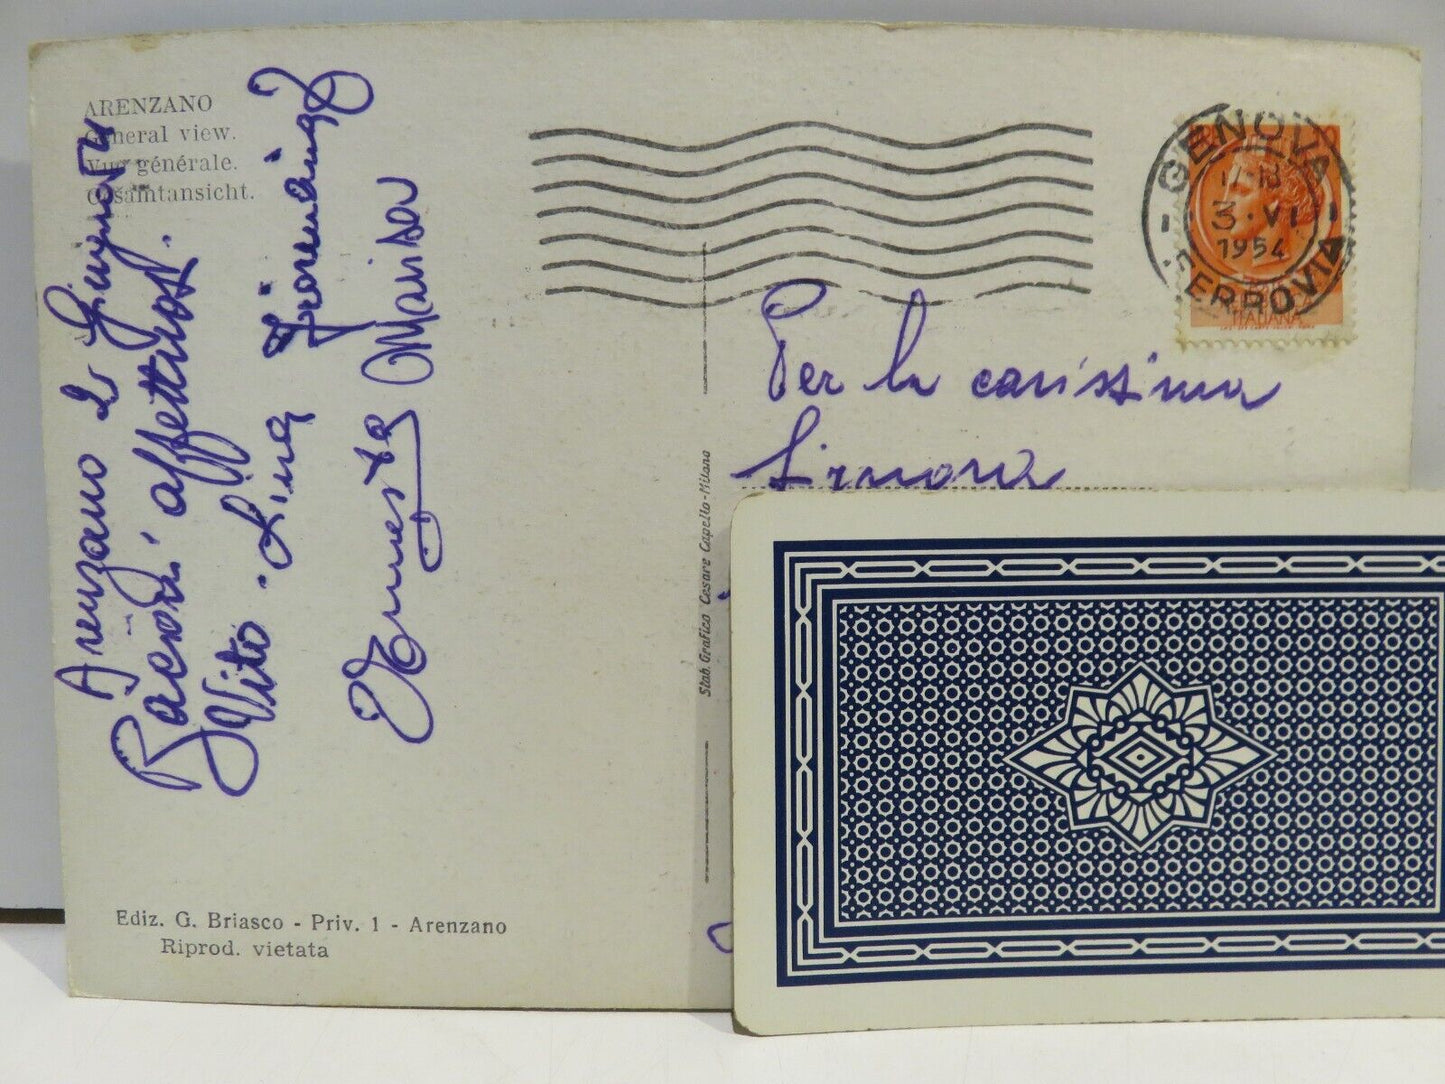 ARENZANO
General view.
Vue générale.
Gesamtansicht.
Arenzano 2 Giugno 54
Bacioni affettuosi.
Vito. Lina
Ernesta Marisa
Ediz. G. Briasco - Priv. 1 - Arenzano
Riprod. vietata
Stab. Grafico Cesare Capello-Milano
GENOVA
17-18
3·VI
1954
FERROVIA
ITALIANA
Per la carissima
Signora